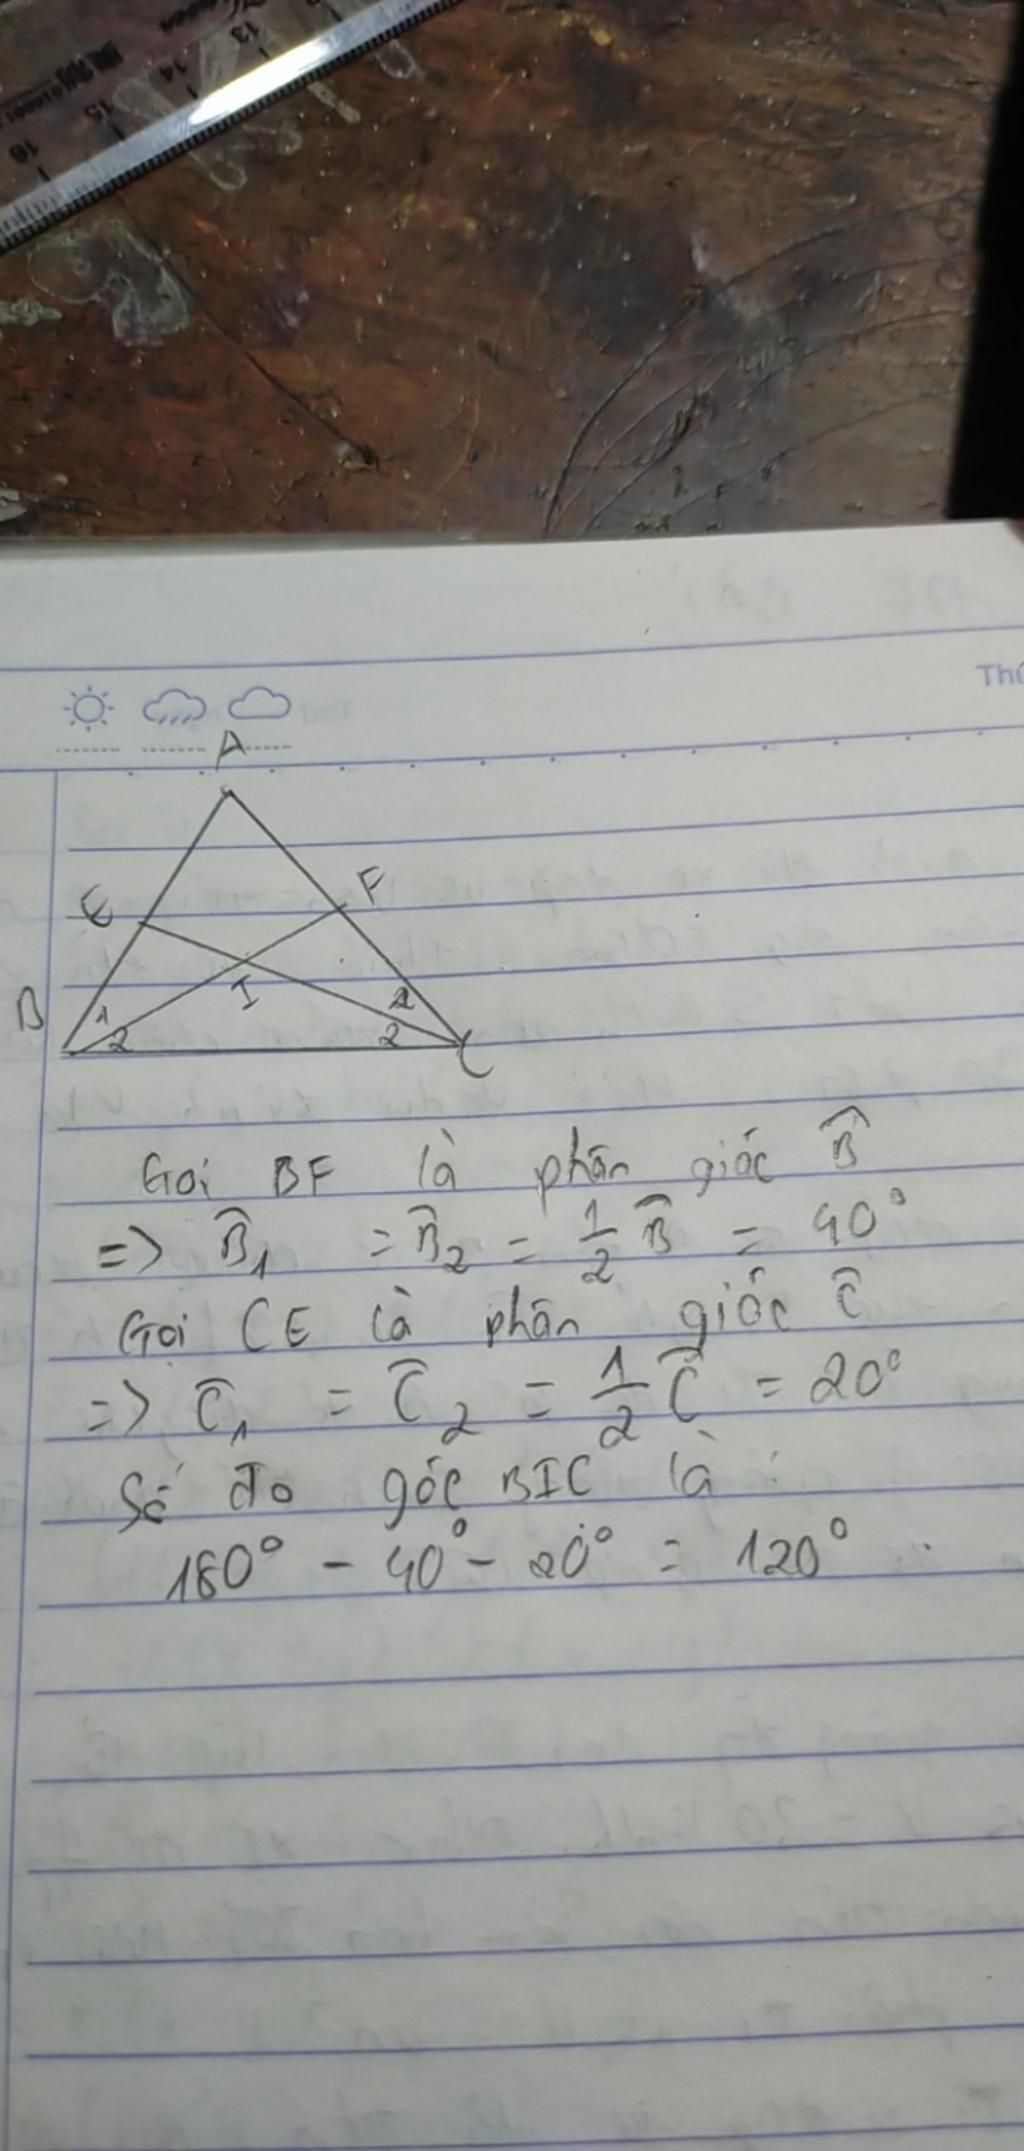 13
14
15
16
Thứ
A
E
F
I
B
1
2
1
2
C
Gọi BF là phân giác B̂
=> B̂₁ = B̂₂ = 1/2 B̂ = 40°
Gọi CE là phân giác Ĉ
=> Ĉ₁ = Ĉ₂ = 1/2 Ĉ = 20°
Số đo góc BIC là :
180° - 40° - 20° = 120°